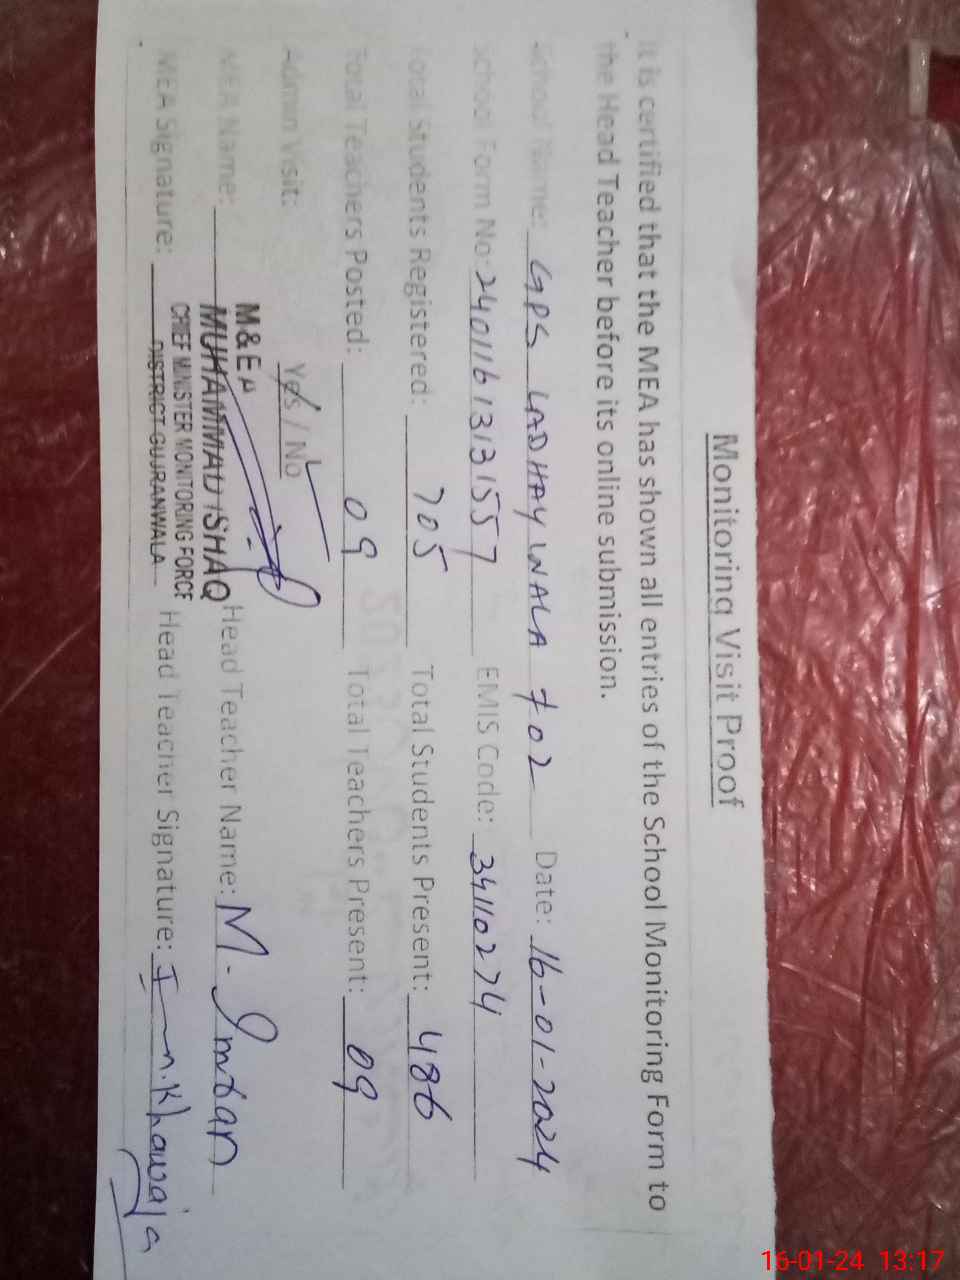 Monitoring Visit Proof
It is certified that the MEA has shown all entries of the School Monitoring Form to
the Head Teacher before its online submission.
School Name: GPS LADHAY WALA 702 Date: 16-01-2024
School Form No: 2401161313157 EMIS Code: 34110274
Total Students Registered: 705 Total Students Present: 486
Total Teachers Posted: 09 Total Teachers Present: 09
Admin Visit: Yes / No
M & EA
MEA Name: MUHAMMAD ISHAQ Head Teacher Name: M. Imran
CHIEF MINISTER MONITORING FORCE
MEA Signature: DISTRICT GUJRANWALA Head Teacher Signature: Khawaja
16-01-24 13:17